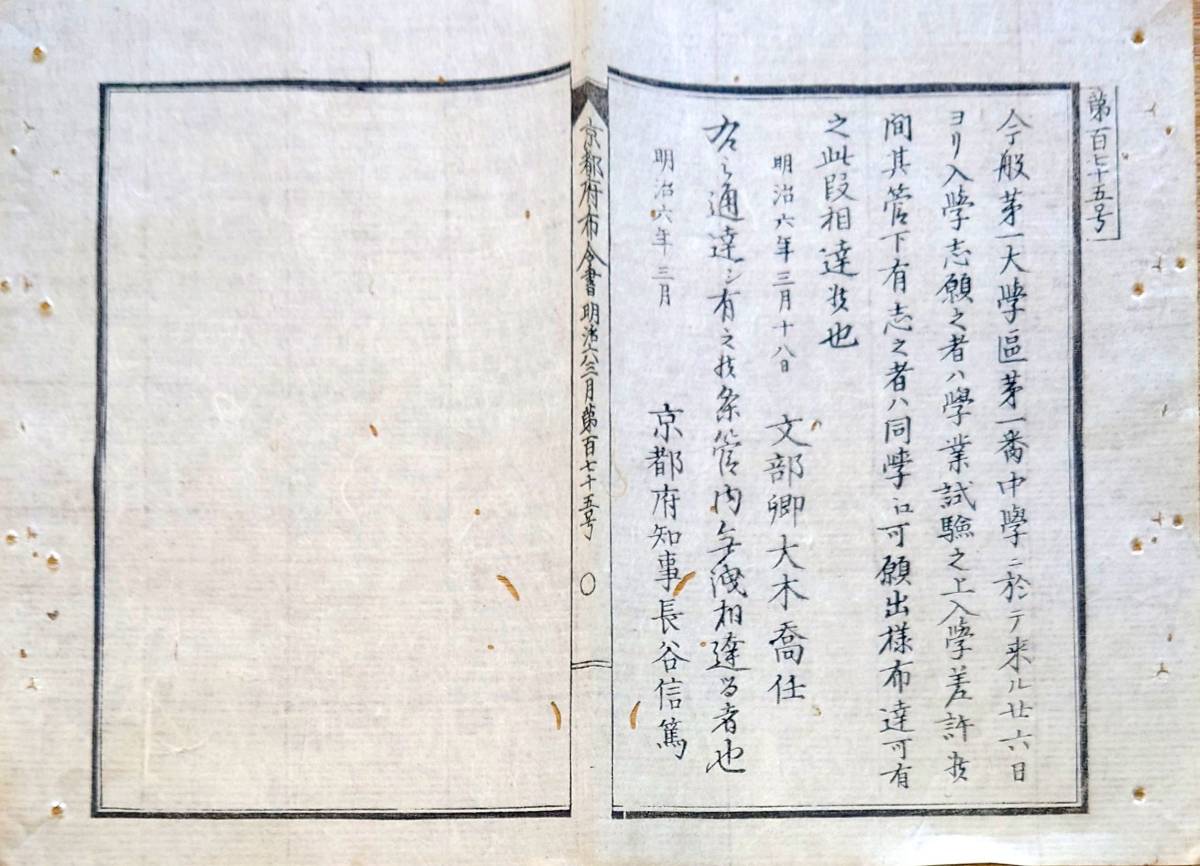 第百七十五号
今般茅一大學區茅一番中學ニ於テ来ル廿六日
ヨリ入學志願之者ハ學業試驗之上入學差許候
間其管下有志之者ハ同學江可願出様布達可有
之此段相達候也
明治六年三月十八日
文部卿大木喬任
右之通達シ有之候条管内無洩相達る者也
明治六年三月
京都府知事長谷信篤
京都府布令書明治六三月第百七十五号